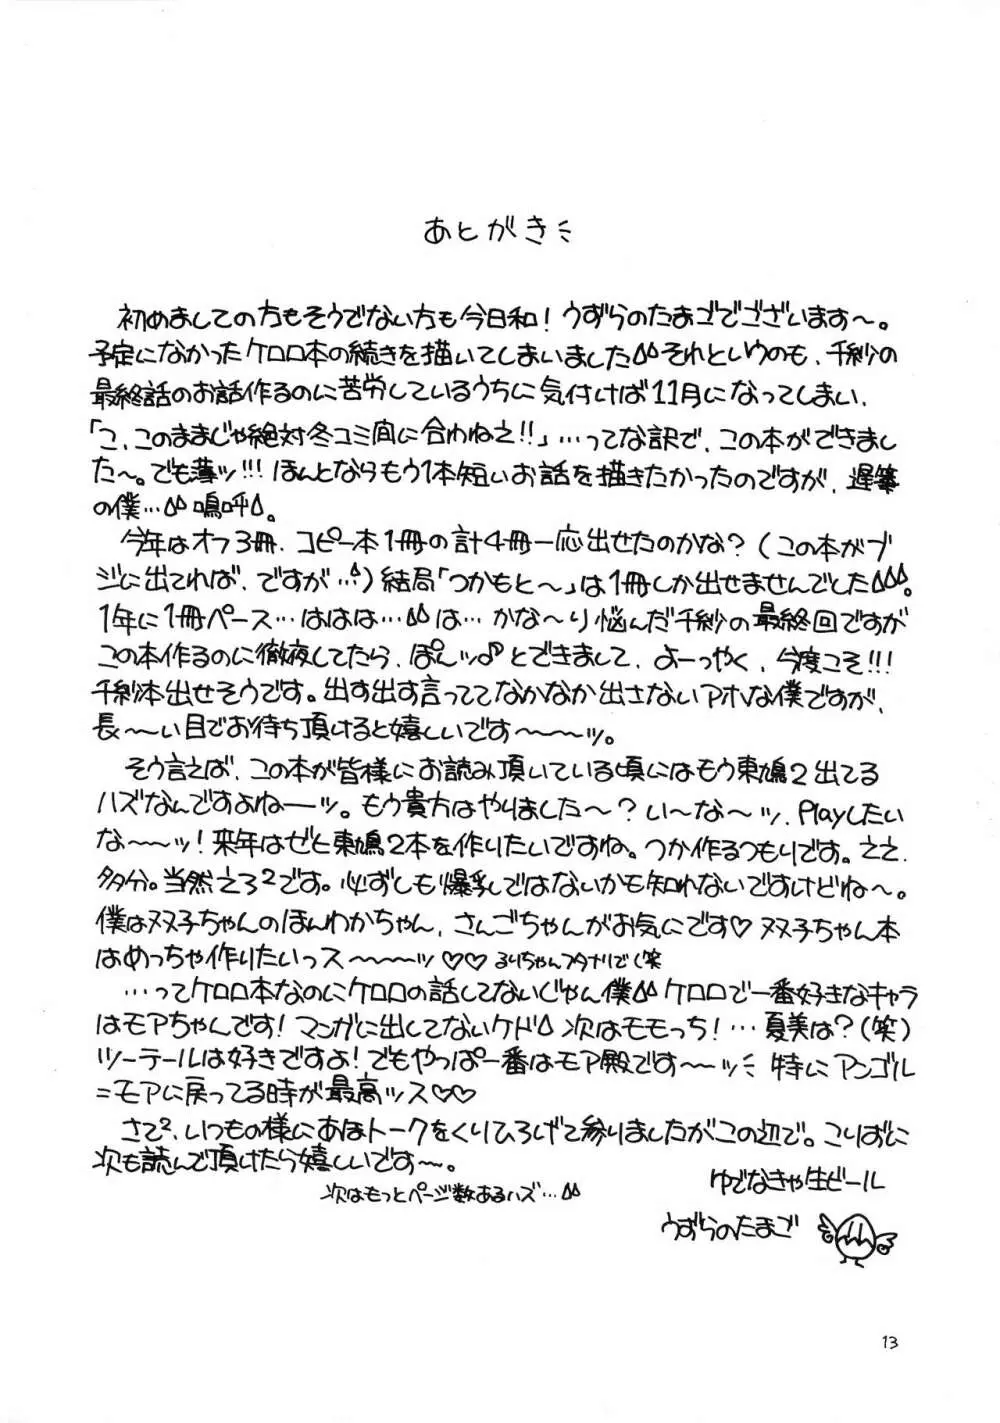 あとがき
初めましての方もそうでない方も今日和！うずらのたまごでございます〜。
予定になかったケロロ本の続きを描いてしまいました それというのも、千紗の
最終話のお話作るのに苦労しているうちに気付けば11月になってしまい、
「こ、このままじゃ絶対冬コミ間に合わねえ!!」…ってな訳で、この本ができまし
た〜。でも薄ッ!!! ほんとならもう1本短いお話を描きたかったのですが、遅筆
の僕… 嗚呼。
今年はオフ3冊、コピー本1冊の計4冊一応出せたのかな？（この本がブ
ジに出てれば、ですが…）結局「つかもと〜」は1冊しか出せませんでした。
1年に1冊ペース…ははは… は… かな〜り悩んだ千紗の最終回ですが
この本作るのに徹夜してたら、ぽんッ♪とできまして、よーっやく、今度こそ!!!
千紗本出せそうです。出す出す言っててなかなか出さないアホな僕ですが、
長〜〜い目でお待ち頂けると嬉しいです〜〜〜ッ。
そう言えば、この本が皆様にお読み頂いている頃にはもう東鳩2出てる
ハズなんですよねーッ。もう貴方はやりました〜？い〜な〜ッ、Playしたい
な〜〜ッ！来年はぜと東鳩2本を作りたいですね。つか作るつもりです。ええ、
多分。当然えろ²です。必ずしも爆乳ではないかも知れないですけどね〜。
僕は双子ちゃんのほんわかちゃん、さんごちゃんがお気にです♡ 双子ちゃん本
はめっちゃ作りたいっス〜〜〜ッ♡♡ るりちゃんフタナリで（笑
…ってケロロ本なのにケロロの話してないじゃん僕 ケロロで一番好きなキャラ
はモアちゃんです！マンガに出してないケド 次はモモっち！…夏美は？（笑）
ツーテールは好きですよ！でもやっぱ一番はモア殿です〜〜ッ 特にアンゴル
＝モアに戻ってる時が最高ッス♡♡
さて²、いつもの様にあほトークをくりひろげて参りましたがこの辺で。こりずに
次も読んで頂けたら嬉しいです〜。
次はもっとページ数あるハズ…
ゆでなきゃ生ビール
うずらのたまご
13